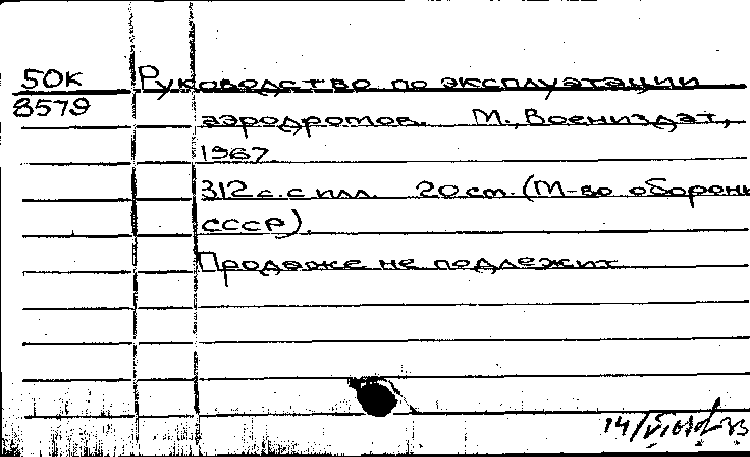 50К Руководство по эксплуатации
8579 аэродромов. М., Воениздат,
1967.
312 с. с илл. 20 см. (М-во оборони
СССР).
Продаже не подлежит